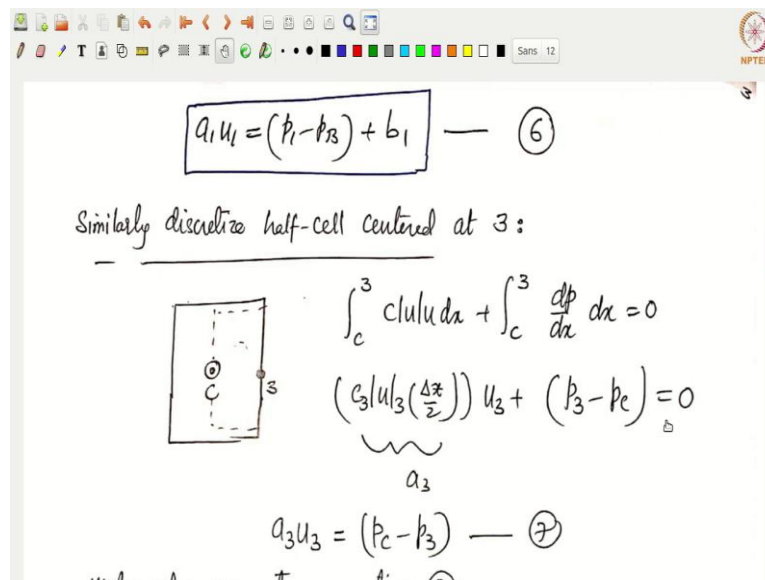 T Sans 12
NPTEL
a₁u₁ = (p₁-p_B) + b₁ — ⑥
Similarly discretize half-cell centered at 3:
∫_C^3 c|u|u dx + ∫_C^3 dp/dx dx = 0
C 3
(c₃|u|₃(Δx/2)) u₃ + (p₃-p_C) = 0
a₃
a₃u₃ = (p_C-p₃) — ⑦